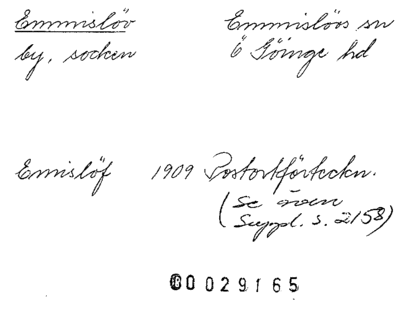 Emmislöv Emmislövs sn
by, socken Ö Göinge hd
Emislöf 1909 Postortförteckn.
(se även
Suppl. s. 2158)
00029165